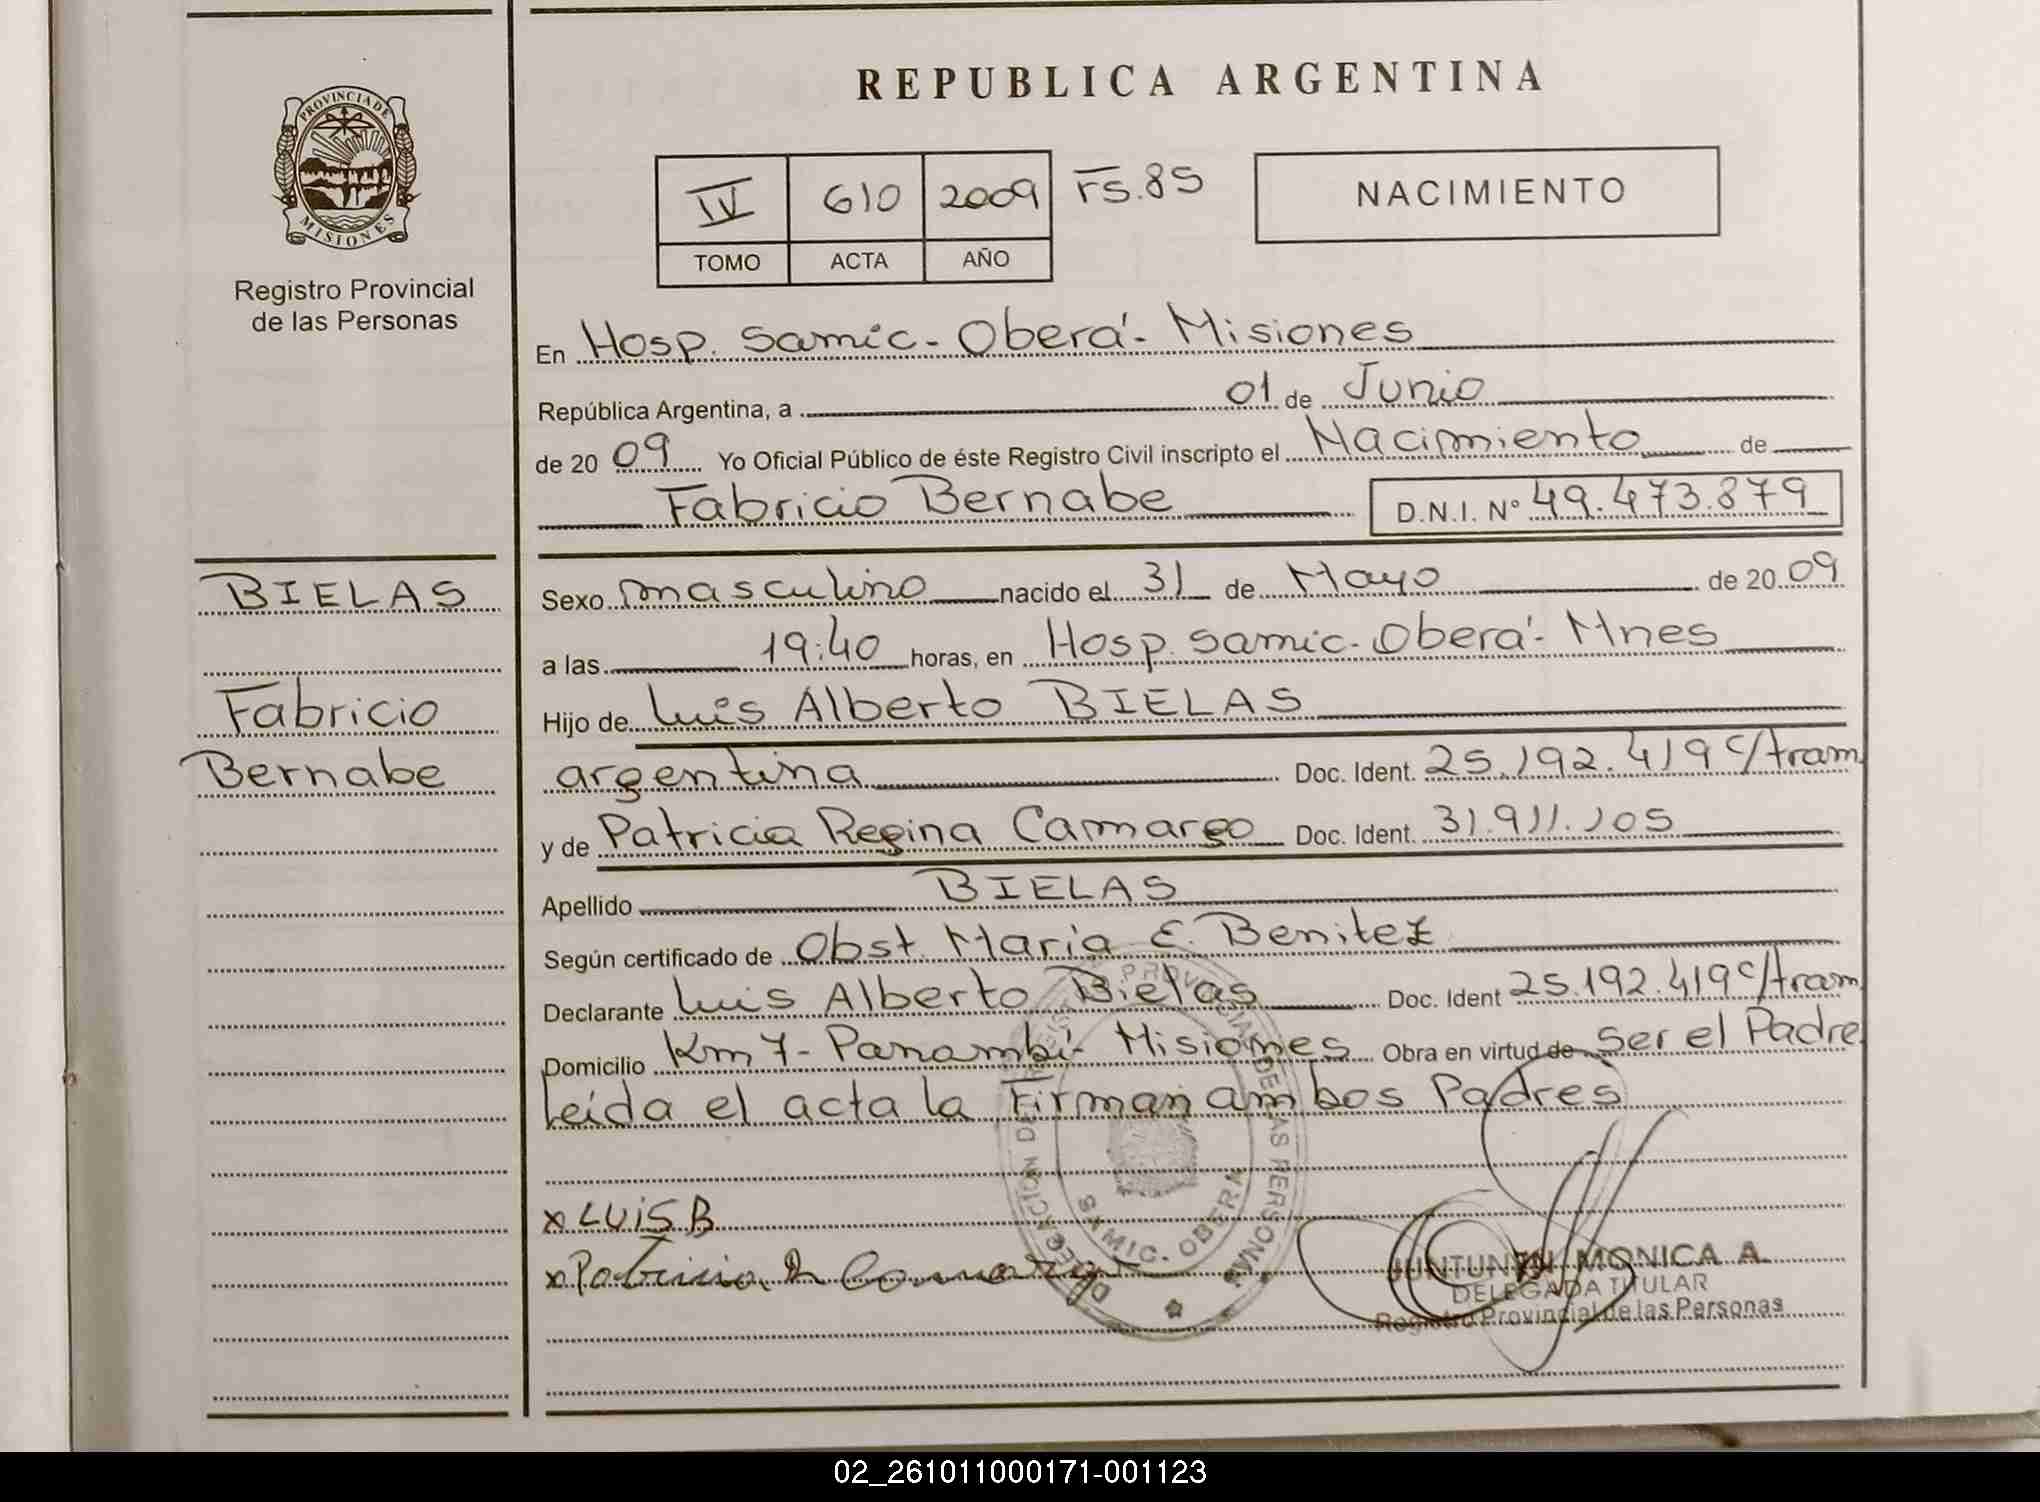 REPUBLICA ARGENTINA
PROVINCIA DE
MISIONES
Registro Provincial
de las Personas
IV 610 2009 Fs.85
TOMO ACTA AÑO
NACIMIENTO
En Hosp. Samic - Oberá - Misiones
República Argentina, a 01 de Junio
de 2009 Yo Oficial Público de éste Registro Civil inscripto el Nacimiento de
Fabricio Bernabe D.N.I. Nº 49.473.879
BIELAS
Fabricio
Bernabe
Sexo masculino nacido el 31 de Mayo de 2009
a las 19:40 horas, en Hosp. Samic - Oberá - Mnes
Hijo de Luis Alberto BIELAS
argentina Doc. Ident. 25.192.419 c/tram
y de Patricia Regina Camargo Doc. Ident. 31.911.105
Apellido BIELAS
Según certificado de Obst. Maria E. Benitez
Declarante Luis Alberto Bielas Doc. Ident 25.192.419 c/tram
Domicilio Km 7 - Panambí - Misiones Obra en virtud de Ser el Padre
leída el acta la Firman ambos Padres
x LUiS B
x Patricia R Camargo
SAMIC. OBERA
JUNTUNEN MONICA A.
DELEGADA TITULAR
Registro Provincial de las Personas
02_261011000171-001123